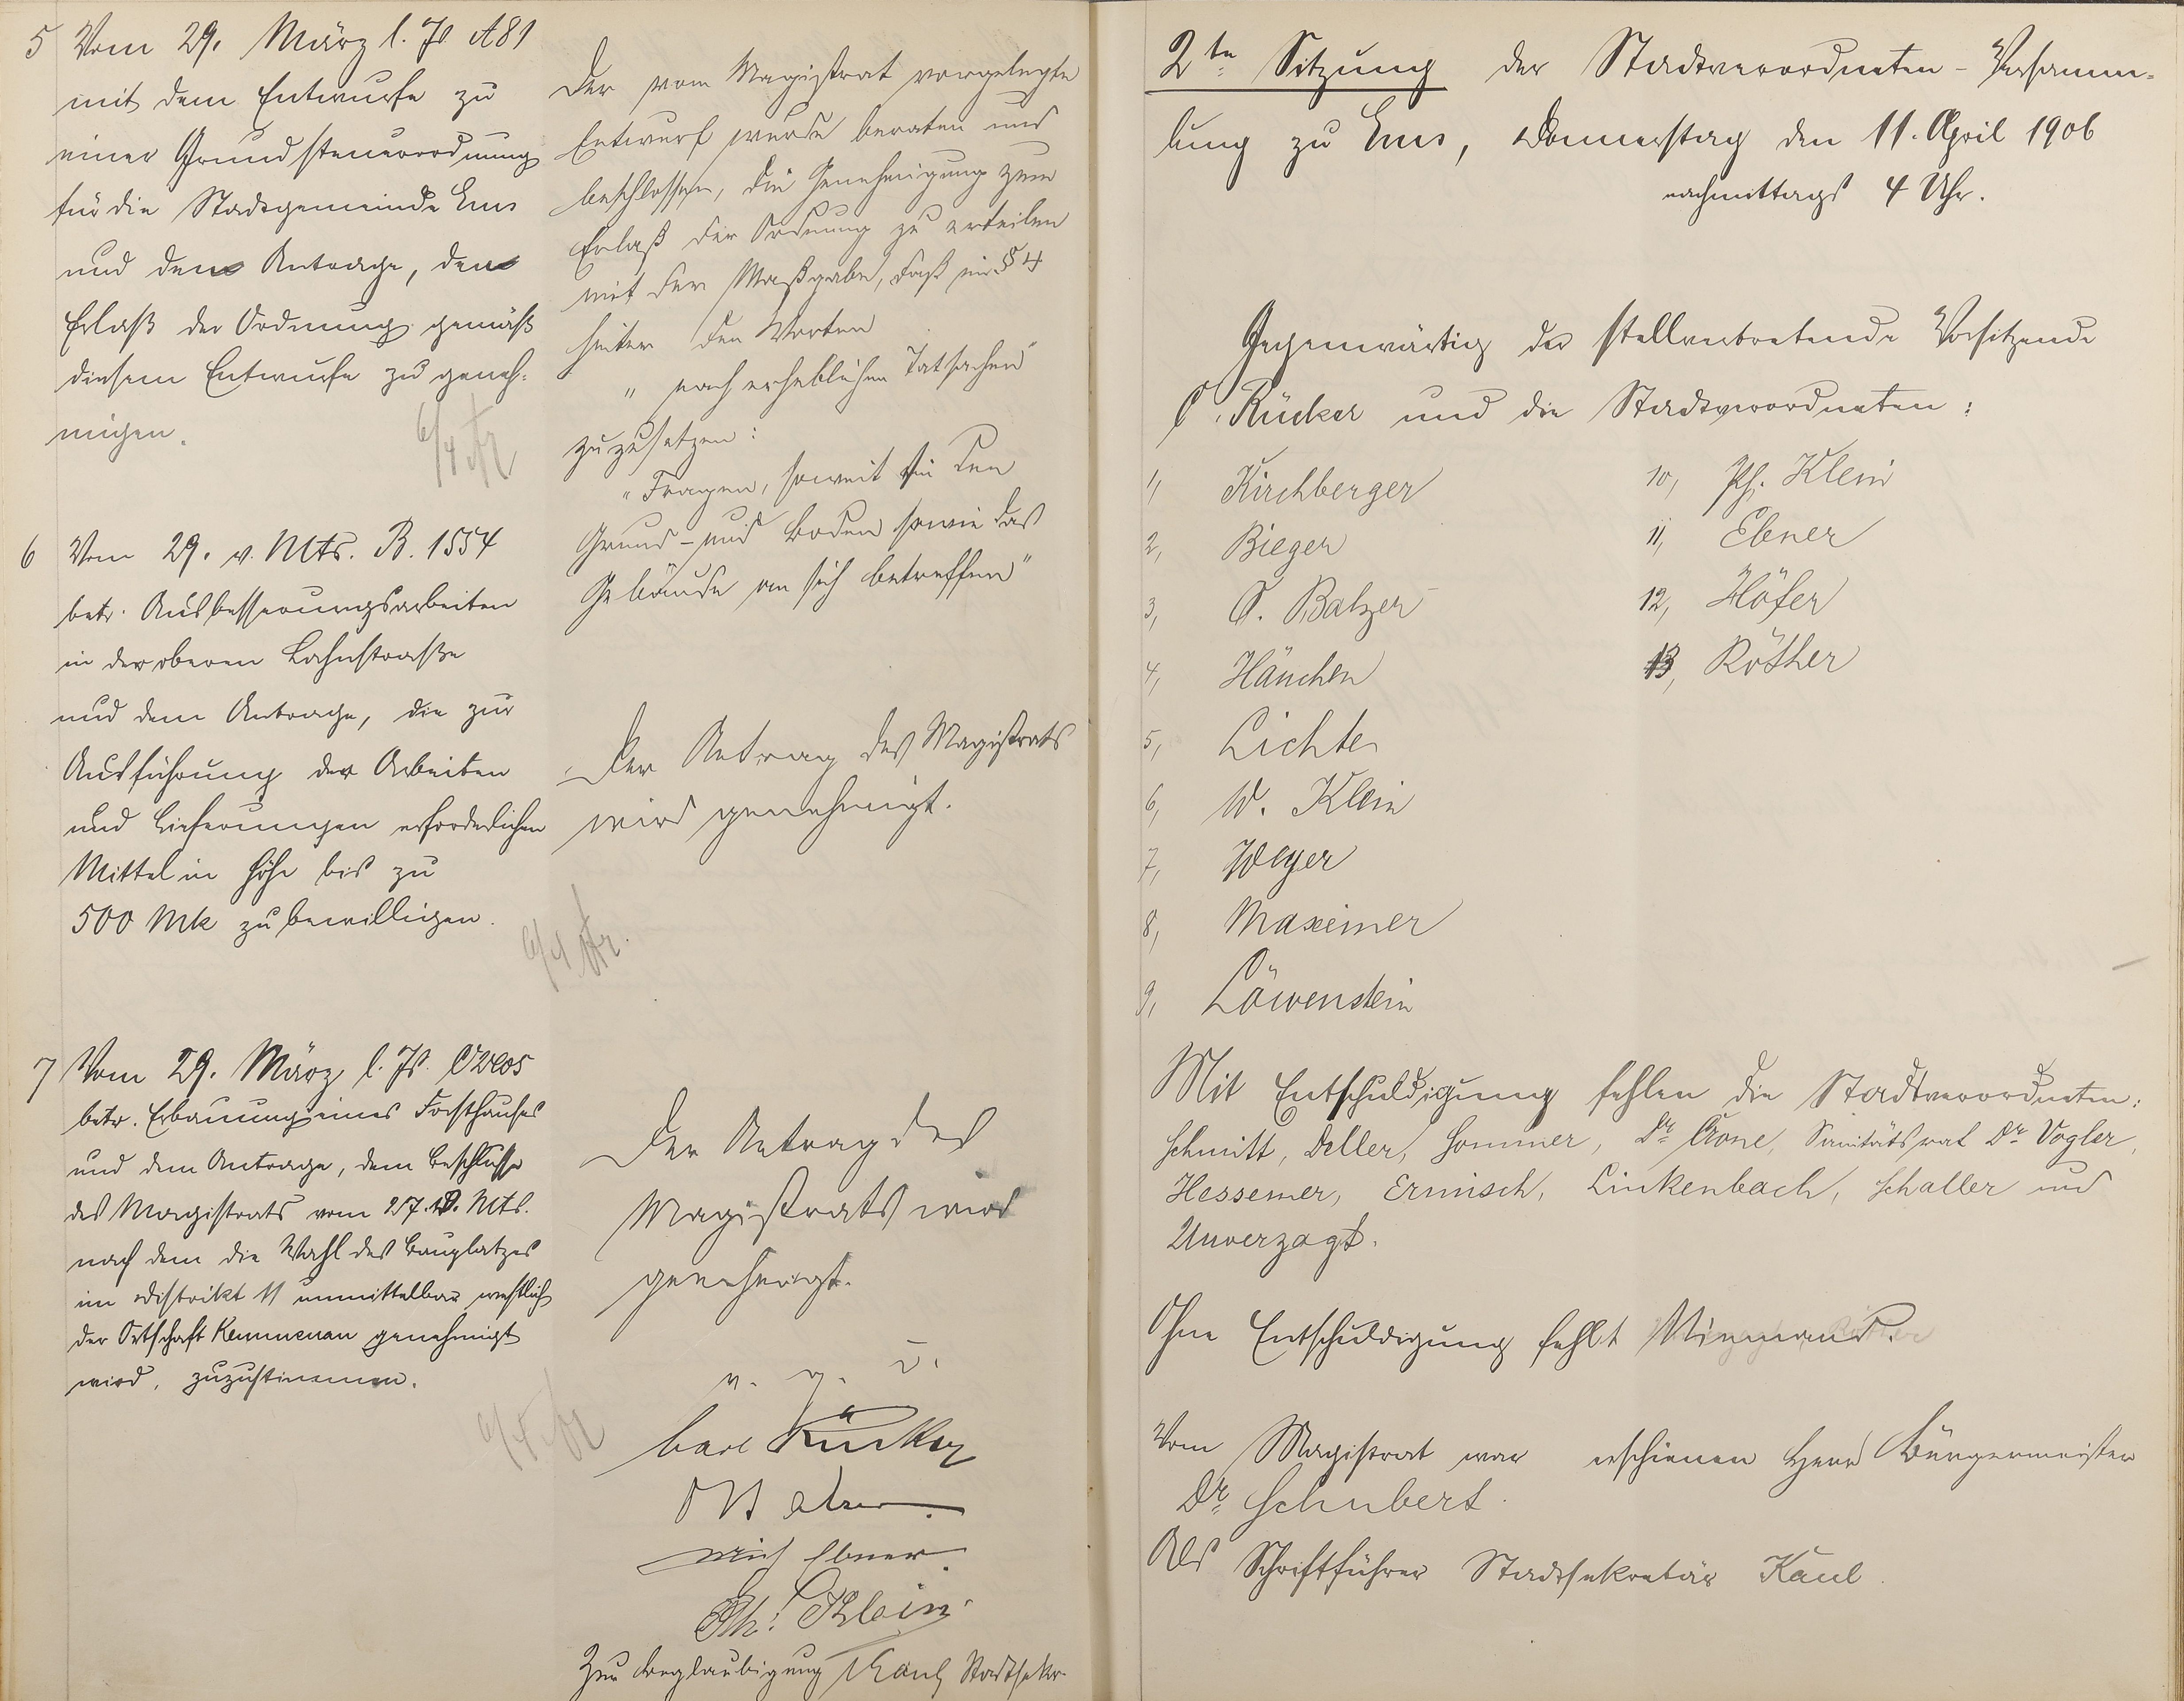 5 Vom 29. März l. Js A81
mit dem Entwurfe zu
einer Grundsteuerordnung
für die Stadtgemeinde Ems
und dem Antrage, den
Erlaß der Ordnung gemäß
diesem Entwurfe zu geneh-
migen.
6/4
6 Vom 29. v. Mts. B. 1554
betr. Ausbesserungsarbeiten
in der oberen Lahnstraße
und dem Antrage, die zur
Ausführung der Arbeiten
und Lieferungen erforderlichen
Mittel in Höhe bis zu
500 Mk zu bewilligen.
6/4
7 Vom 29. März l. Js.
betr. Erbauung eines Forsthauses
und dem Antrage, dem Beschlusse
des Magistrats vom 27. v. Mts.
nach dem die Wahl des Bauplatzes
im Distrikt 11 unmittelbar westlich
der Ortschaft Kemmenau genehmigt
wird, zuzustimmen.
Der vom Magistrat vorgelegte
Entwurf wurde beraten und
beschlossen, die Genehmigung zum
Erlaß der Ordnung zu erteilen
mit der Maßgabe, daß in § 4
hinter den Worten
"nach erheblichen Tatsachen"
zuzusetzen:
"Fragen, soweit sie den
Grund- und Boden sowie das
Gebäude an sich betreffen"
Der Antrag des Magistrats
wird genehmigt.
Der Antrag des
Magistrats wird
genehmigt.
v. g. u.
Carl Rücker
Ebner
Ph. Klein
Zur Beglaubigung Kaul Stadtsekr.
2te Sitzung der Stadtverordneten-Versamm-
lung zu Ems, Donnerstag den 11. April 1906
nachmittags 4 Uhr.
Gegenwärtig der stellvertretende Vorsitzende
C. Rücker und die Stadtverordneten:
1, Kirchberger
2, Bieger
3, O. Balzer
4, Hänchen
5, Lichte
6, W. Klein
7, Weyer
8, Maxeiner
9, Löwenstein
10, Ph. Klein
11, Ebner
12, Höfer
13, Röther
Mit Entschuldigung fehlen die Stadtverordneten:
Schmitt, Deller, Sommer, Dr. Crone, Sanitätsrat Dr. Vogler,
Hessemer, Ermisch, Linkenbach, Schaller und
Unverzagt.
Ohne Entschuldigung fehlt Niemand.
Vom Magistrat war erschienen Herr Bürgermeister
Dr. Schubert.
Als Schriftführer Stadtsekretär Kaul.